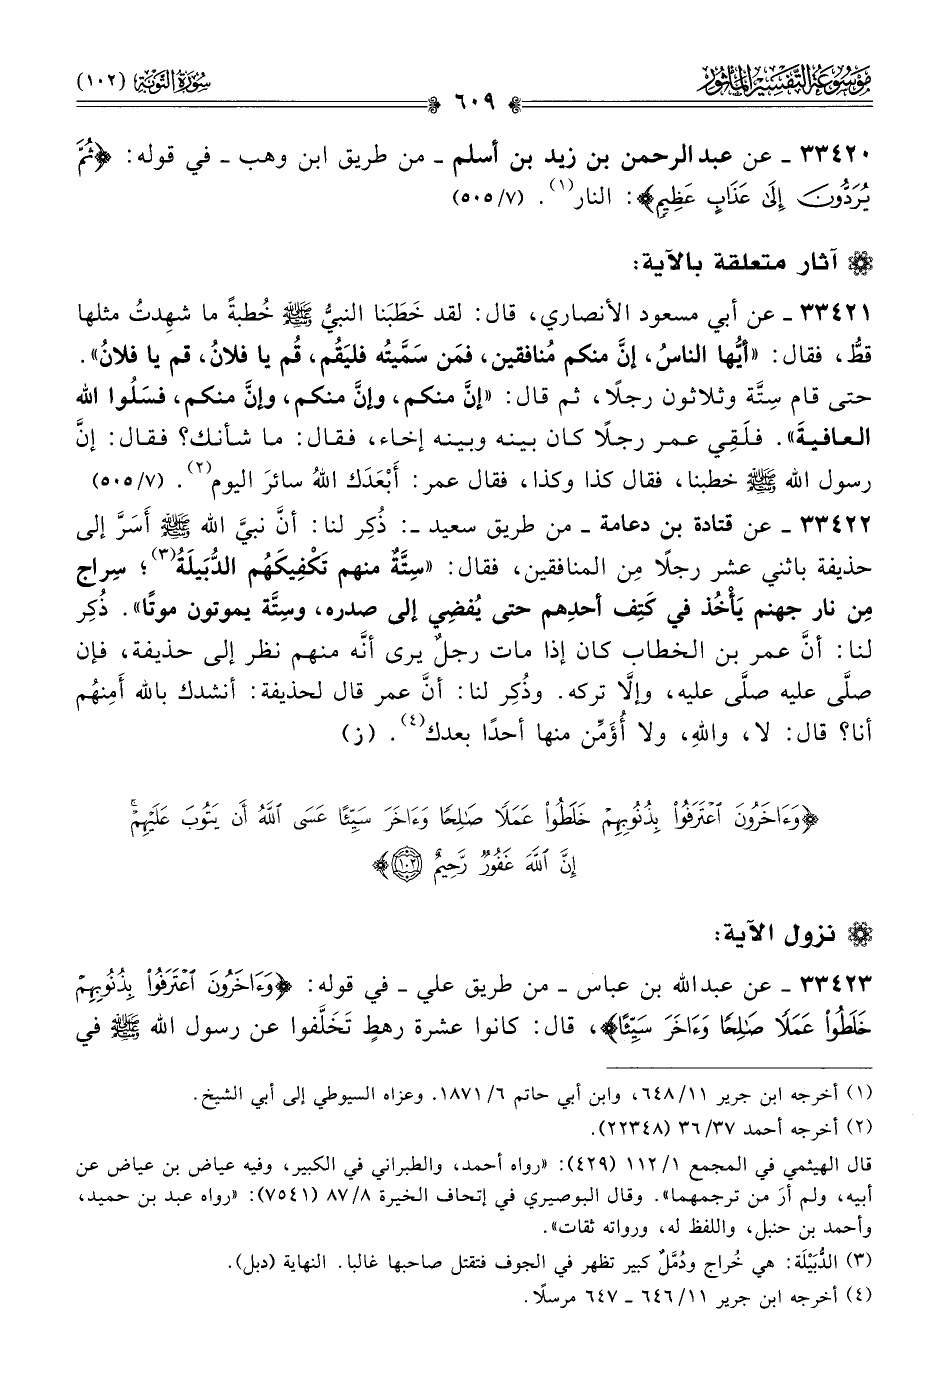 موسوعة التفسير المأثور
سورة التوبة (١٠٢)
٦٠٩
٣٣٤٢٠ ـ عن عبد الرحمن بن زيد بن أسلم ـ من طريق ابن وهب ـ في قوله: ﴿ثُمَّ
يُرَدُّونَ إِلَىٰ عَذَابٍ عَظِيمٍ﴾: النار(١). (٥٠٥/٧)
آثار متعلقة بالآية:
٣٣٤٢١ ـ عن أبي مسعود الأنصاري، قال: لقد خَطَبَنا النبيُّ ﷺ خُطبةً ما شهِدتُ مثلها
قطُّ، فقال: «أيُّها الناسُ، إنَّ منكم مُنافقين، فمَن سَمَّيتُه فليَقُم، قُم يا فلانُ، قم يا فلانُ».
حتى قام سِتَّة وثلاثون رجلًا، ثم قال: «إنَّ منكم، وإنَّ منكم، وإنَّ منكم، فسَلُوا الله
العافيةَ». فلَقِي عمر رجلًا كان بينه وبينه إخاء، فقال: ما شأنك؟ فقال: إنَّ
رسول الله ﷺ خطبنا، فقال كذا وكذا، فقال عمر: أَبْعَدَك اللهُ سائرَ اليوم(٢). (٥٠٥/٧)
٣٣٤٢٢ ـ عن قتادة بن دعامة ـ من طريق سعيد ـ: ذُكِر لنا: أنَّ نبيَّ الله ﷺ أَسَرَّ إلى
حذيفة باثني عشر رجلًا مِن المنافقين، فقال: «سِتَّةٌ منهم تَكْفِيكَهُم الدُّبَيلَةُ(٣)؛ سِراج
مِن نار جهنم يَأْخُذ في كَتِف أحدِهم حتى يُفضِي إلى صدره، وستَّة يموتون موتًا». ذُكِر
لنا: أنَّ عمر بن الخطاب كان إذا مات رجلٌ يرى أنَّه منهم نظر إلى حذيفة، فإن
صلَّى عليه صلَّى عليه، وإلَّا تركه. وذُكِر لنا: أنَّ عمر قال لحذيفة: أنشدك بالله أَمِنهُم
أنا؟ قال: لا، واللهِ، ولا أُؤَمِّن منها أحدًا بعدك(٤). (ز)
﴿وَءَاخَرُونَ ٱعْتَرَفُوا۟ بِذُنُوبِهِمْ خَلَطُوا۟ عَمَلًا صَـٰلِحًا وَءَاخَرَ سَيِّئًا عَسَى ٱللَّهُ أَن يَتُوبَ عَلَيْهِمْ ۚ
إِنَّ ٱللَّهَ غَفُورٌ رَّحِيمٌ ١٠٢﴾
نزول الآية:
٣٣٤٢٣ ـ عن عبدالله بن عباس ـ من طريق علي ـ في قوله: ﴿وَءَاخَرُونَ ٱعْتَرَفُوا۟ بِذُنُوبِهِمْ
خَلَطُوا۟ عَمَلًا صَـٰلِحًا وَءَاخَرَ سَيِّئًا﴾، قال: كانوا عشرة رهطٍ تَخَلَّفوا عن رسول الله ﷺ في
(١) أخرجه ابن جرير ١١/ ٦٤٨، وابن أبي حاتم ٦/ ١٨٧١. وعزاه السيوطي إلى أبي الشيخ.
(٢) أخرجه أحمد ٣٧/ ٣٦ (٢٢٣٤٨).
قال الهيثمي في المجمع ١/ ١١٢ (٤٢٩): «رواه أحمد، والطبراني في الكبير، وفيه عياض بن عياض عن
أبيه، ولم أرَ من ترجمهما». وقال البوصيري في إتحاف الخيرة ٨/ ٨٧ (٧٥٤١): «رواه عبد بن حميد،
وأحمد بن حنبل، واللفظ له، ورواته ثقات».
(٣) الدُّبَيْلَة: هي خُراج ودُمَّلٌ كبير تظهر في الجوف فتقتل صاحبها غالبا. النهاية (دبل).
(٤) أخرجه ابن جرير ١١/ ٦٤٦ ـ ٦٤٧ مرسلًا.